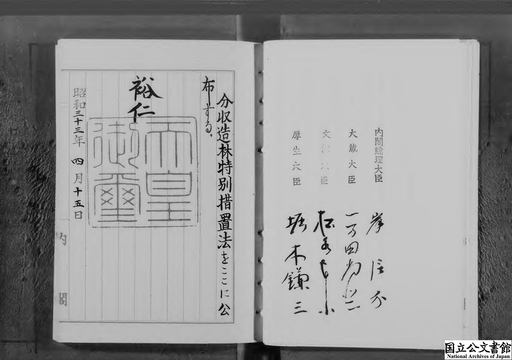 内閣総理大臣 岸信介
大蔵大臣 一万田尚登
文部大臣 松永東
厚生大臣 堀木鎌三
分収造林特別措置法をここに公
布する。
裕仁
天皇
御璽
昭和三十三年四月十五日
内閣
国立公文書館
National Archives of Japan